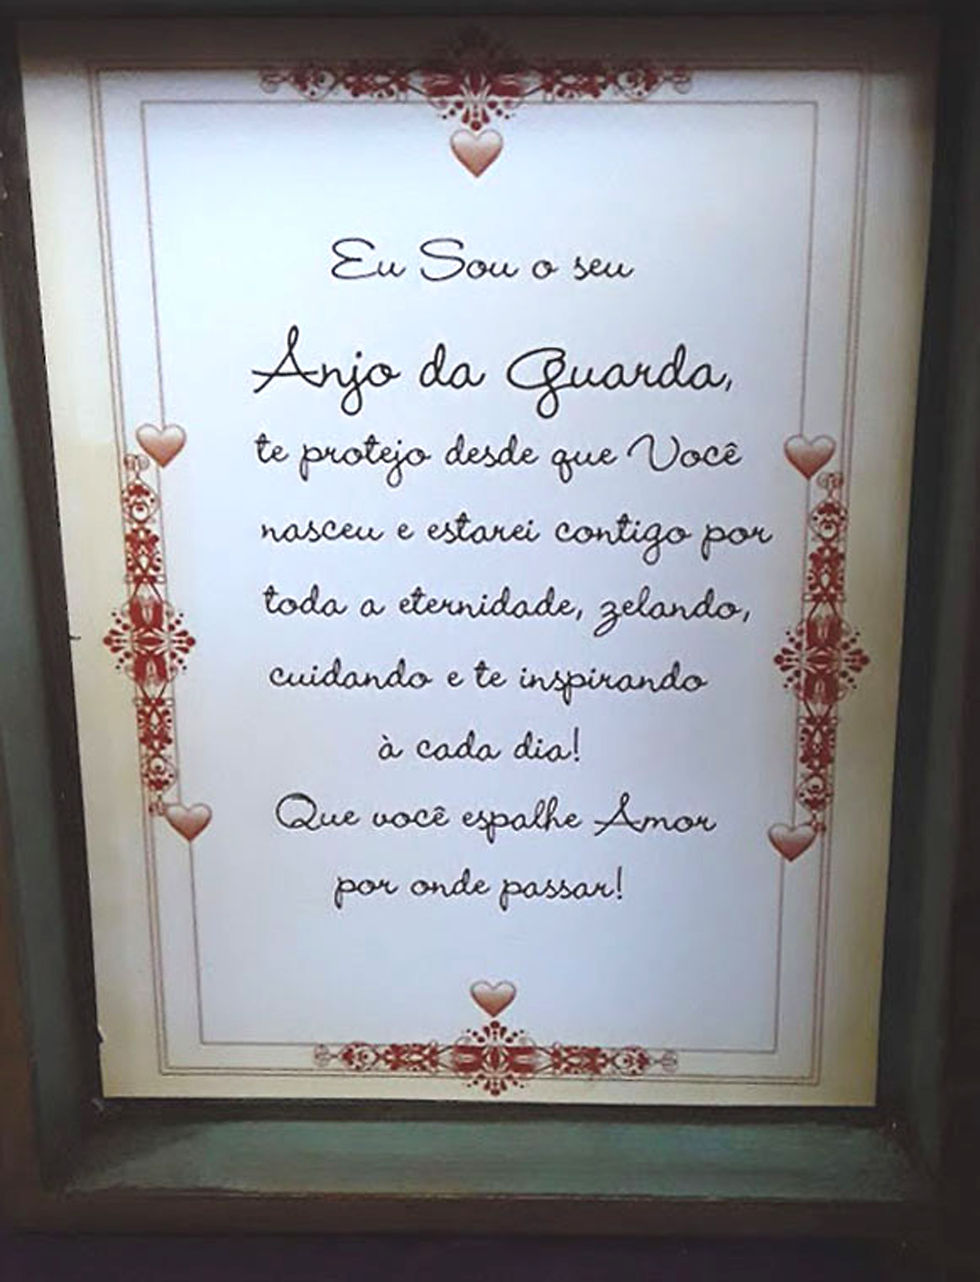 Eu Sou o seu
Anjo da Guarda,
te protejo desde que Você
nasceu e estarei contigo por
toda a eternidade, zelando,
cuidando e te inspirando
à cada dia!
Que você espalhe Amor
por onde passar!